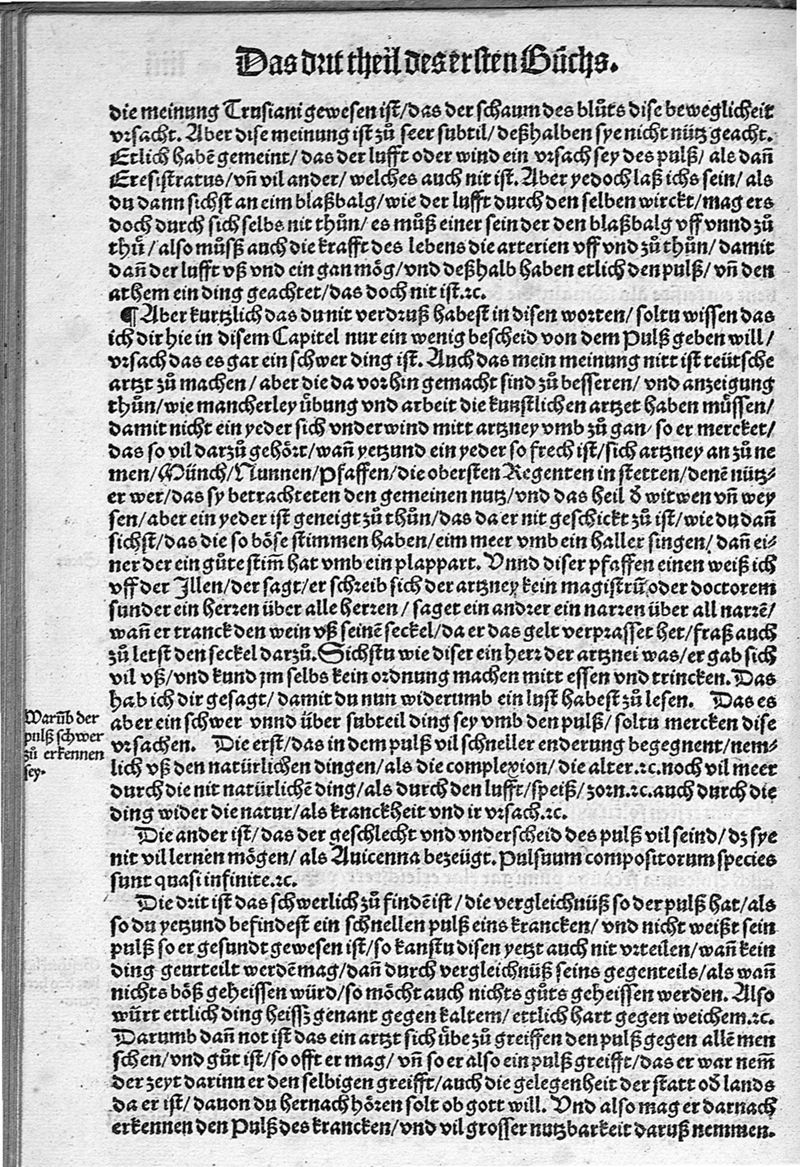 Das drit theil des ersten Bůchs.
die meinung Trusiani gewesen ist/das der schaum des blůts dise beweglicheit
vrsacht. Aber dise meinung ist zů seer subtil/deßhalben sye nicht nütz geacht.
Etlich habẽ gemeint/das der lufft oder wind ein vrsach sey des pulß/als dañ
Eresistratus/vñ vil ander/welches auch nit ist. Aber yedoch laß ichs sein/als
du dann sichst an eim blaßbalg/wie der lufft durch den selben wirckt/mag ers
doch durch sich selbs nit thůn/es můß einer sein der den blaßbalg vff vnnd zů
thů/also můsß auch die krafft des lebens die arterien vff vnd zů thůn/damit
dañ der lufft vß vnd ein gan mög/vnd deßhalb haben etlich den pulß/vñ den
athem ein ding geachtet/das doch nit ist.ꝛc.
¶ Aber kurtzlich das du nit verdruß habest in disen worten/soltu wissen das
ich dir hie in disem Capitel nur ein wenig bescheid von dem Pulß geben will/
vrsach das es gar ein schwer ding ist. Auch das mein meinung nitt ist teütsche
artzt zů machen/aber die da vorhin gemacht sind zů besseren/vnd anzeigung
thůn/wie mancherley übung vnd arbeit die kunstlichen artzet haben müssen/
damit nicht ein yeder sich vnderwind mitt artzney vmb zů gan/so er mercket/
das so vil darzů gehört/wañ yetzund ein yeder so frech ist/sich artzney an zů ne
men/Münch/Nunnen/Pfaffen/die obersten Regenten in stetten/denẽ nütz-
er wer/das sy betrachteten den gemeinen nutz/vnd das heil ð witwen vñ wey
sen/aber ein yeder ist geneigt zů thůn/das da er nit geschickt zů ist/wie du dañ
sichst/das die so böse stimmen haben/eim meer vmb ein haller singen/dañ ei-
ner der ein gůte stim̃ hat vmb ein plappart. Vnnd diser pfaffen einen weiß ich
vff der Illen/der sagt/er schreib sich der artzney kein magistrũ oder doctorem
sunder ein herren über alle herren/saget ein andrer ein narren über all narrẽ/
wañ er tranck den wein vß seinẽ seckel/da er das gelt verprasset het/fraß auch
zů letst den seckel darzů. Sichstu wie diser ein herr der artznei was/er gab sich
vil vß/vnd kund jm selbs kein ordnung machen mitt essen vnd trincken. Das
hab ich dir gesagt/damit du nun widerumb ein lust habest zů lesen. Das es
aber ein schwer vnnd über subteil ding sey vmb den pulß/soltu mercken dise
vrsachen. Die erst/das in dem pulß vil schneller enderung begegnent/nem-
lich vß den natürlichen dingen/als die complexion/die alter.ꝛc.noch vil meer
durch die nit natürlichẽ ding/als durch den lufft/speiß/zorn.ꝛc.auch durch die
ding wider die natur/als kranckheit vnd ir vrsach.ꝛc.
Warũb der
pulß schwer
zů erkennen
sey.
Die ander ist/das der geschlecht vnd vnderscheid des pulß vil seind/dz sye
nit vil lernen mögen/als Auicenna bezeügt. Pulsuum compositorum species
sunt quasi infinite.ꝛc.
Die drit ist das schwerlich zů findẽ ist/die vergleichnüß so der pulß hat/als
so du yetzund befindest ein schnellen pulß eins krancken/vnd nicht weißt sein
pulß so er gesundt gewesen ist/so kanstu disen yetzt auch nit vrteilen/wañ kein
ding geurteilt werdẽ mag/dañ durch vergleichnüß seins gegenteils/als wañ
nichts böß geheissen würd/so möcht auch nichts gůts geheissen werden. Also
würt ettlich ding heissz genant gegen kaltem/ettlich hart gegen weichem.ꝛc.
Darumb dañ not ist das ein artzt sich übe zů greiffen den pulß gegen allẽ men
schen/vnd gůt ist/so offt er mag/vñ so er also ein pulß greifft/das er war nem̃
der zeyt darinn er den selbigen greifft/auch die gelegenheit der statt oð lands
da er ist/dauon du hernach hören solt ob gott will. Vnd also mag er darnach
erkennen den Pulß des krancken/vnd vil grosser nutzbarkeit daruß nemmen.